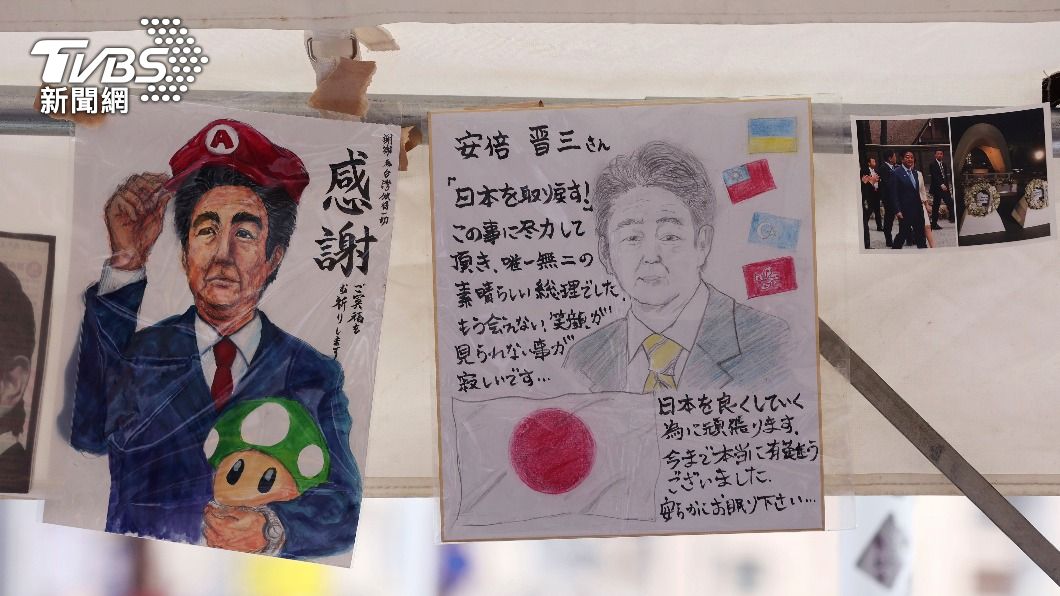 TVBS
新聞網
A
謝謝為台灣做一切
感謝
ご冥福を
お祈りします
安倍 晋三さん
『日本を取り戻す!』
この事に尽力して
頂き、唯一無二の
素晴らしい総理でした。
もう会えない、笑顔が
見られない事が
寂しいです…
日本を良くしていく
為に頑張ります。
今まで本当に有難う
ございました。
安らかにお眠り下さい…